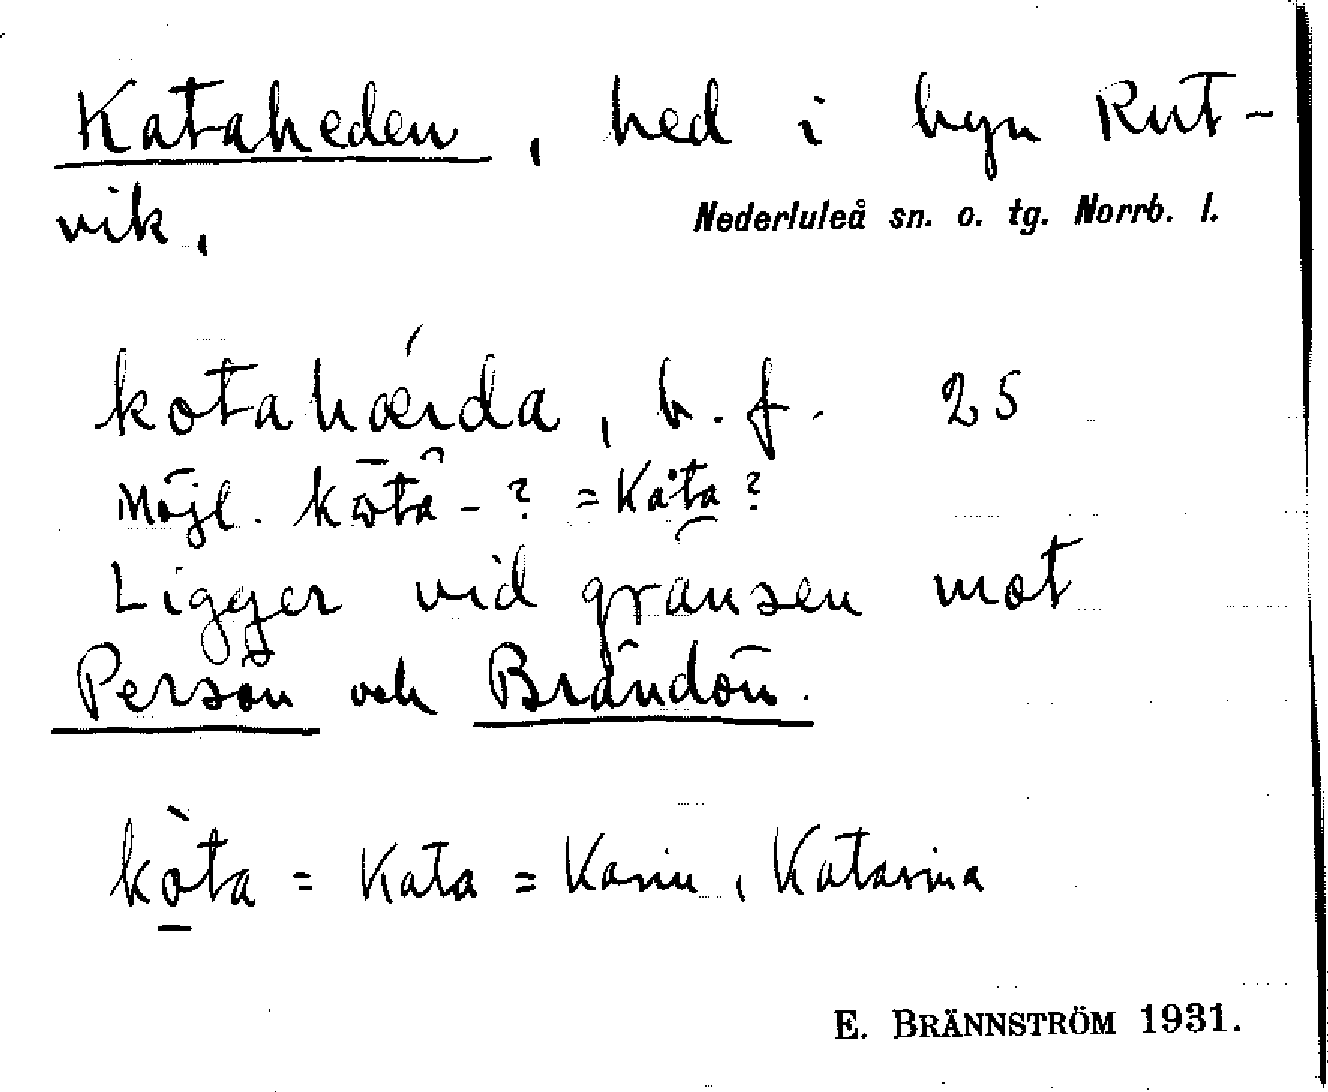 Kataheden, hed i byn Rut-
vik. Nederluleå sn. o. tg. Norrb. l.
kotahǽida, b. f. 25
Möjl. kōtâ-? = Kåta?
Ligger vid gränsen mot
Persön och Brändön.
kòta = Kata = Karin, Katarina
E. BRÄNNSTRÖM 1931.